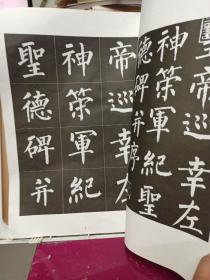 巡幸左
神策軍紀聖
德碑并序
帝巡幸左
神策軍紀
聖德碑并